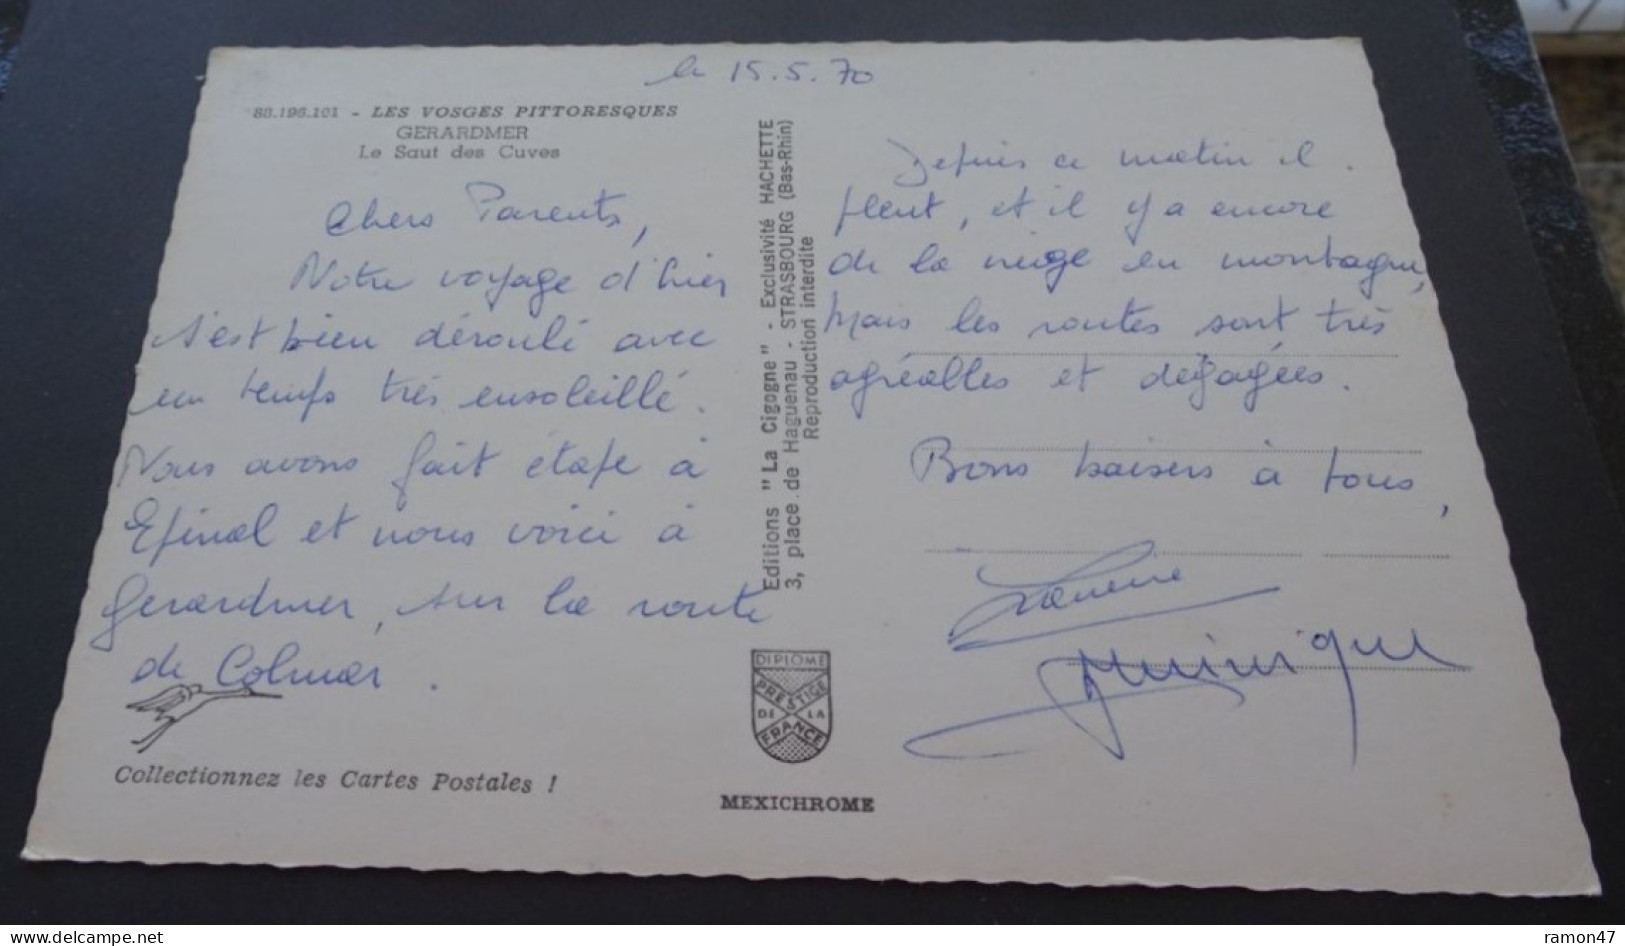 le 15.5.70
88.196.101 - LES VOSGES PITTORESQUES
GERARDMER
Le Saut des Cuves
Chers Parents,
Notre voyage d'hier
s'est bien déroulé avec
un temps très ensoleillé.
Nous avons fait étape à
Epinal et nous voici à
Gerardmer, sur la route
de Colmar.
Collectionnez les Cartes Postales !
Editions "La Cigogne" - Exclusivité HACHETTE
3, place de Haguenau - STRASBOURG (Bas-Rhin)
Reproduction interdite
DIPLOME
PRESTIGE
DE LA
FRANCE
MEXICHROME
Depuis ce matin il
pleut, et il y a encore
de la neige en montagne,
mais les routes sont très
agréables et dégagées.
Bons baisers à tous,
ramon47